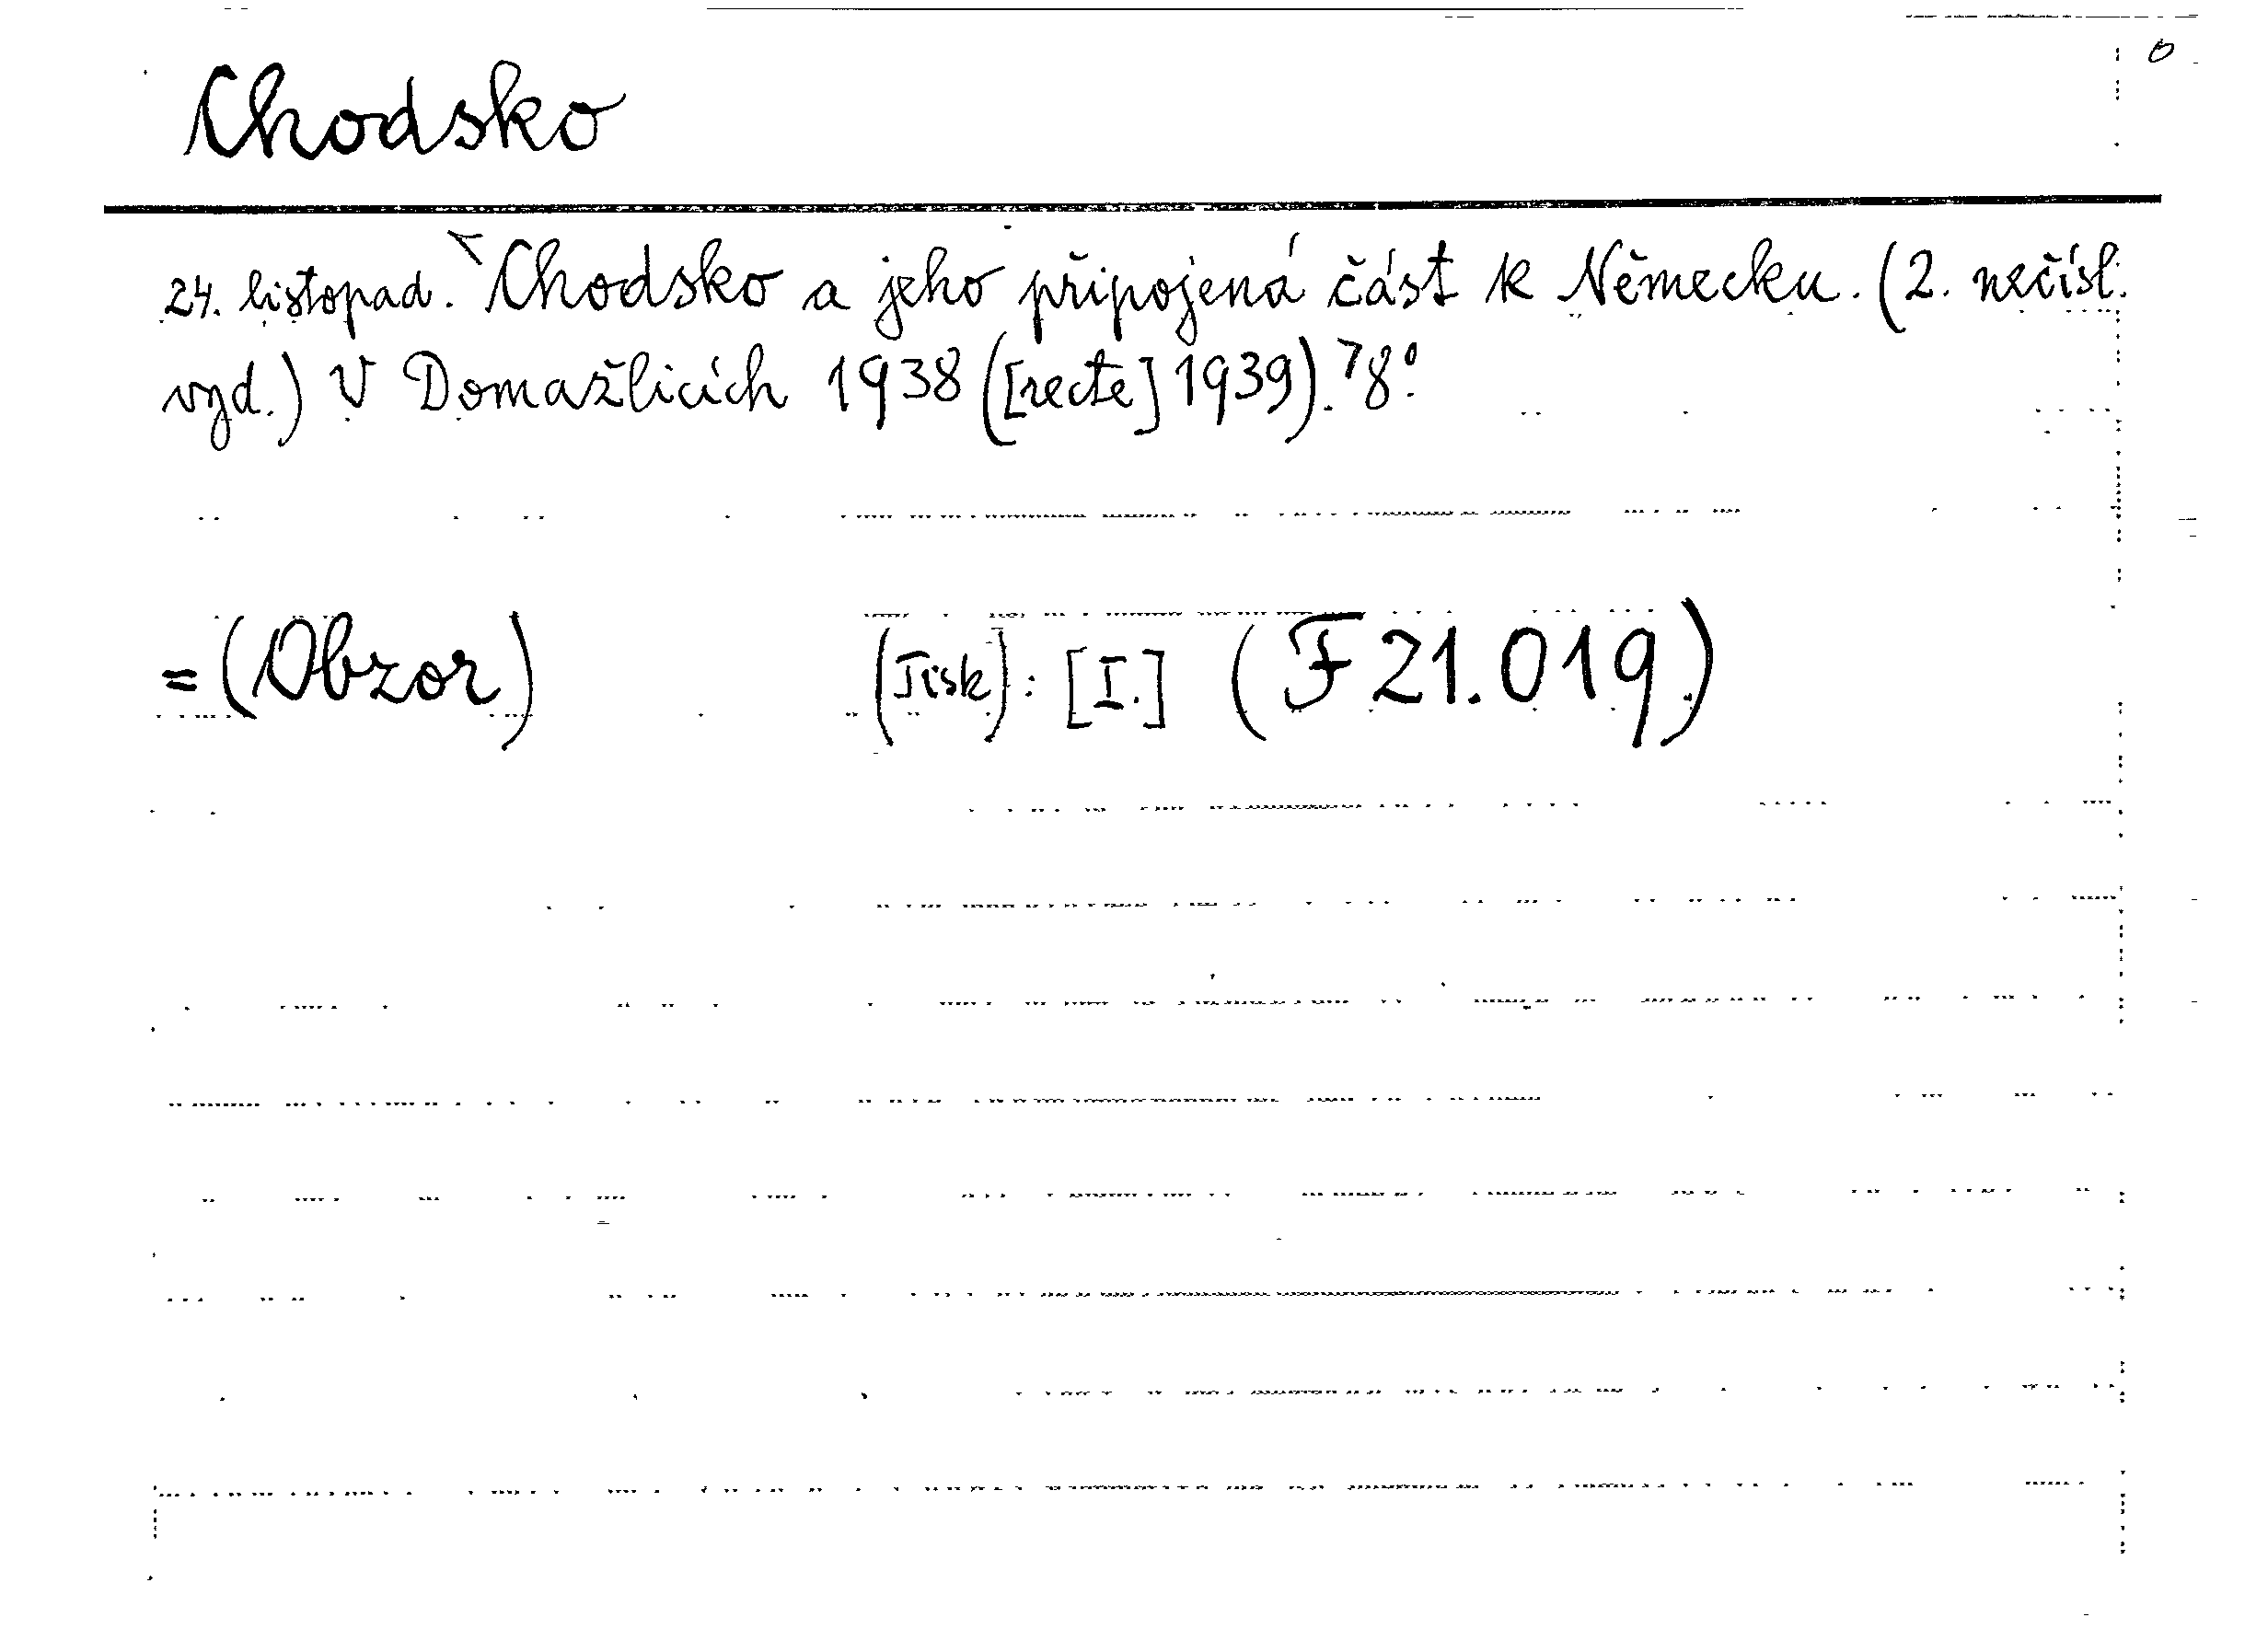 Chodsko
24. listopad. Chodsko a jeho připojená část k Německu. (2. nečísl.
vyd.) V Domažlicích 1938 ([recte] 1939). 8°.
= (Obzor) (Tisk): [I.] (F 21.019.)